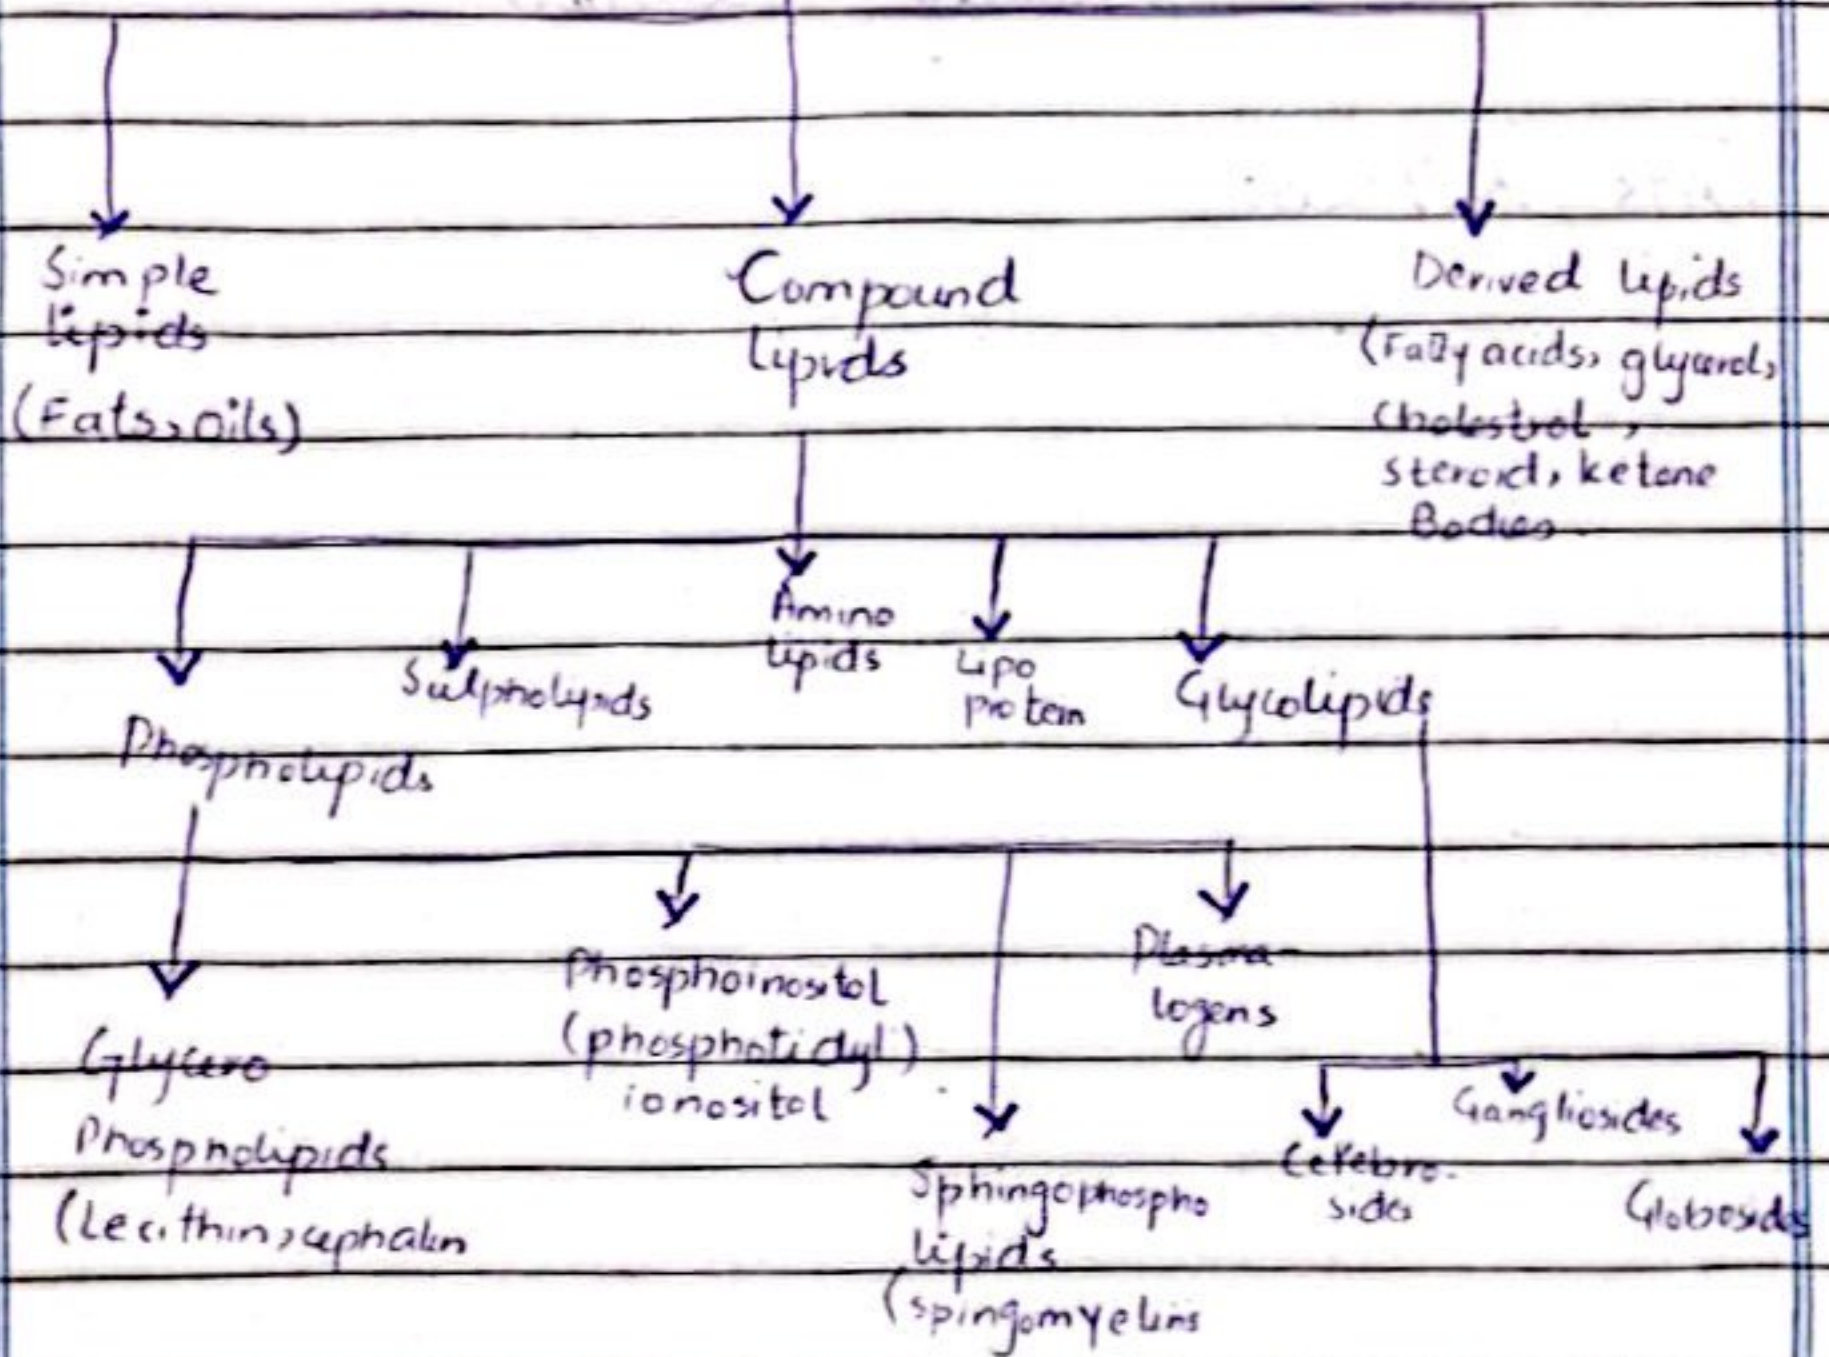 Simple
lipids
(Fats, oils)
Compound
lipids
Derived lipids
(Fatty acids, glycerol,
cholestrol,
steroid, ketone
Bodies
Phospholipids
Sulpholipids
Amino
lipids
Lipo
protein
Glycolipids
Glycero
Phospholipids
(Lecithin, cephalin
Phosphoinositol
(phosphotidyl)
ionositol
Sphingophospho
lipids
(spingomyelins
Plasma
logens
Cerebro-
sides
Gangliosides
Globosides